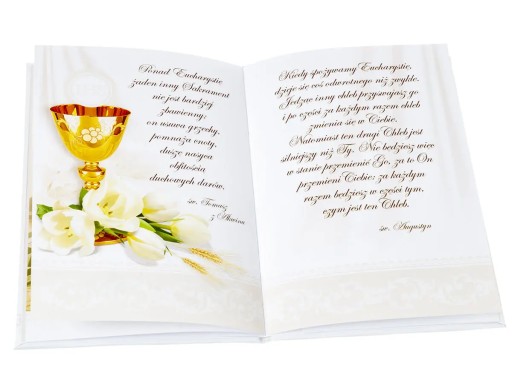 Ponad Eucharystię
żaden inny Sakrament
nie jest bardziej
zbawienny;
on usuwa grzechy,
pomnaża cnoty,
duszę nasyca
obfitością
duchowych darów.
św. Tomasz
z Akwinu
Kiedy spożywamy Eucharystię,
dzieje się coś odwrotnego niż zwykle.
Jedząc inny chleb przyswajasz go
i po części za każdym razem chleb
zmienia się w Ciebie.
Natomiast ten drugi Chleb jest
silniejszy niż Ty. Nie będziesz więc
w stanie przemienić Go, za to On
przemieni Ciebie; za każdym
razem będziesz w części tym,
czym jest ten Chleb.
św. Augustyn